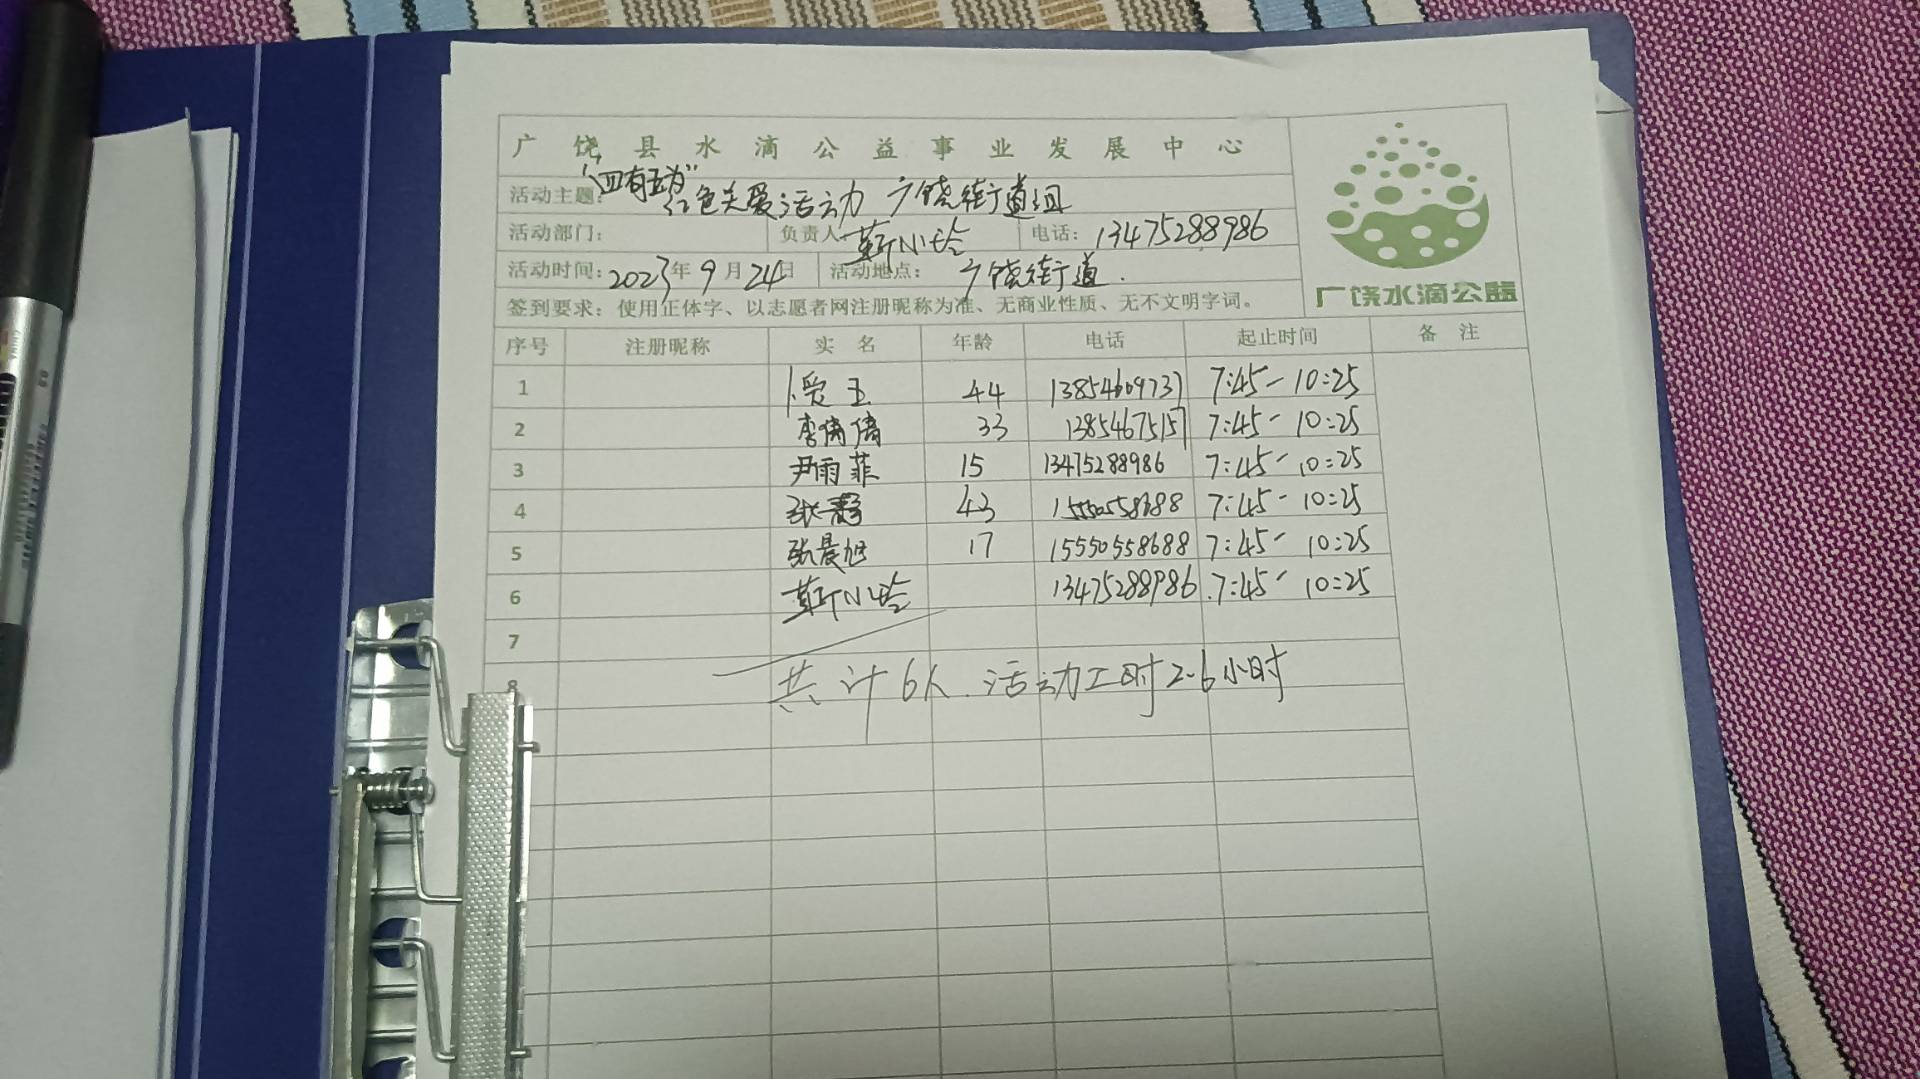 广饶县水滴公益事业发展中心
活动主题: "四有五为"红色关爱活动 广饶街道组
活动部门: 负责人 靳小玲 电话: 13475288986
活动时间: 2023年9月24日 活动地点: 广饶街道.
签到要求: 使用正体字、以志愿者网注册昵称为准、无商业性质、无不文明字词。
广饶水滴公益
序号 注册昵称 实名 年龄 电话 起止时间 备注
1 玉 44 13854609737 7:45-10:25
2 李倩倩 33 13854675157 7:45-10:25
3 尹雨菲 15 13475288986 7:45-10:25
4 张静 43 15550558688 7:45-10:25
5 张晨旭 17 15550558688 7:45-10:25
6 靳小玲 13475288986 7:45-10:25
7
8
共计6人.活动工时2.6小时